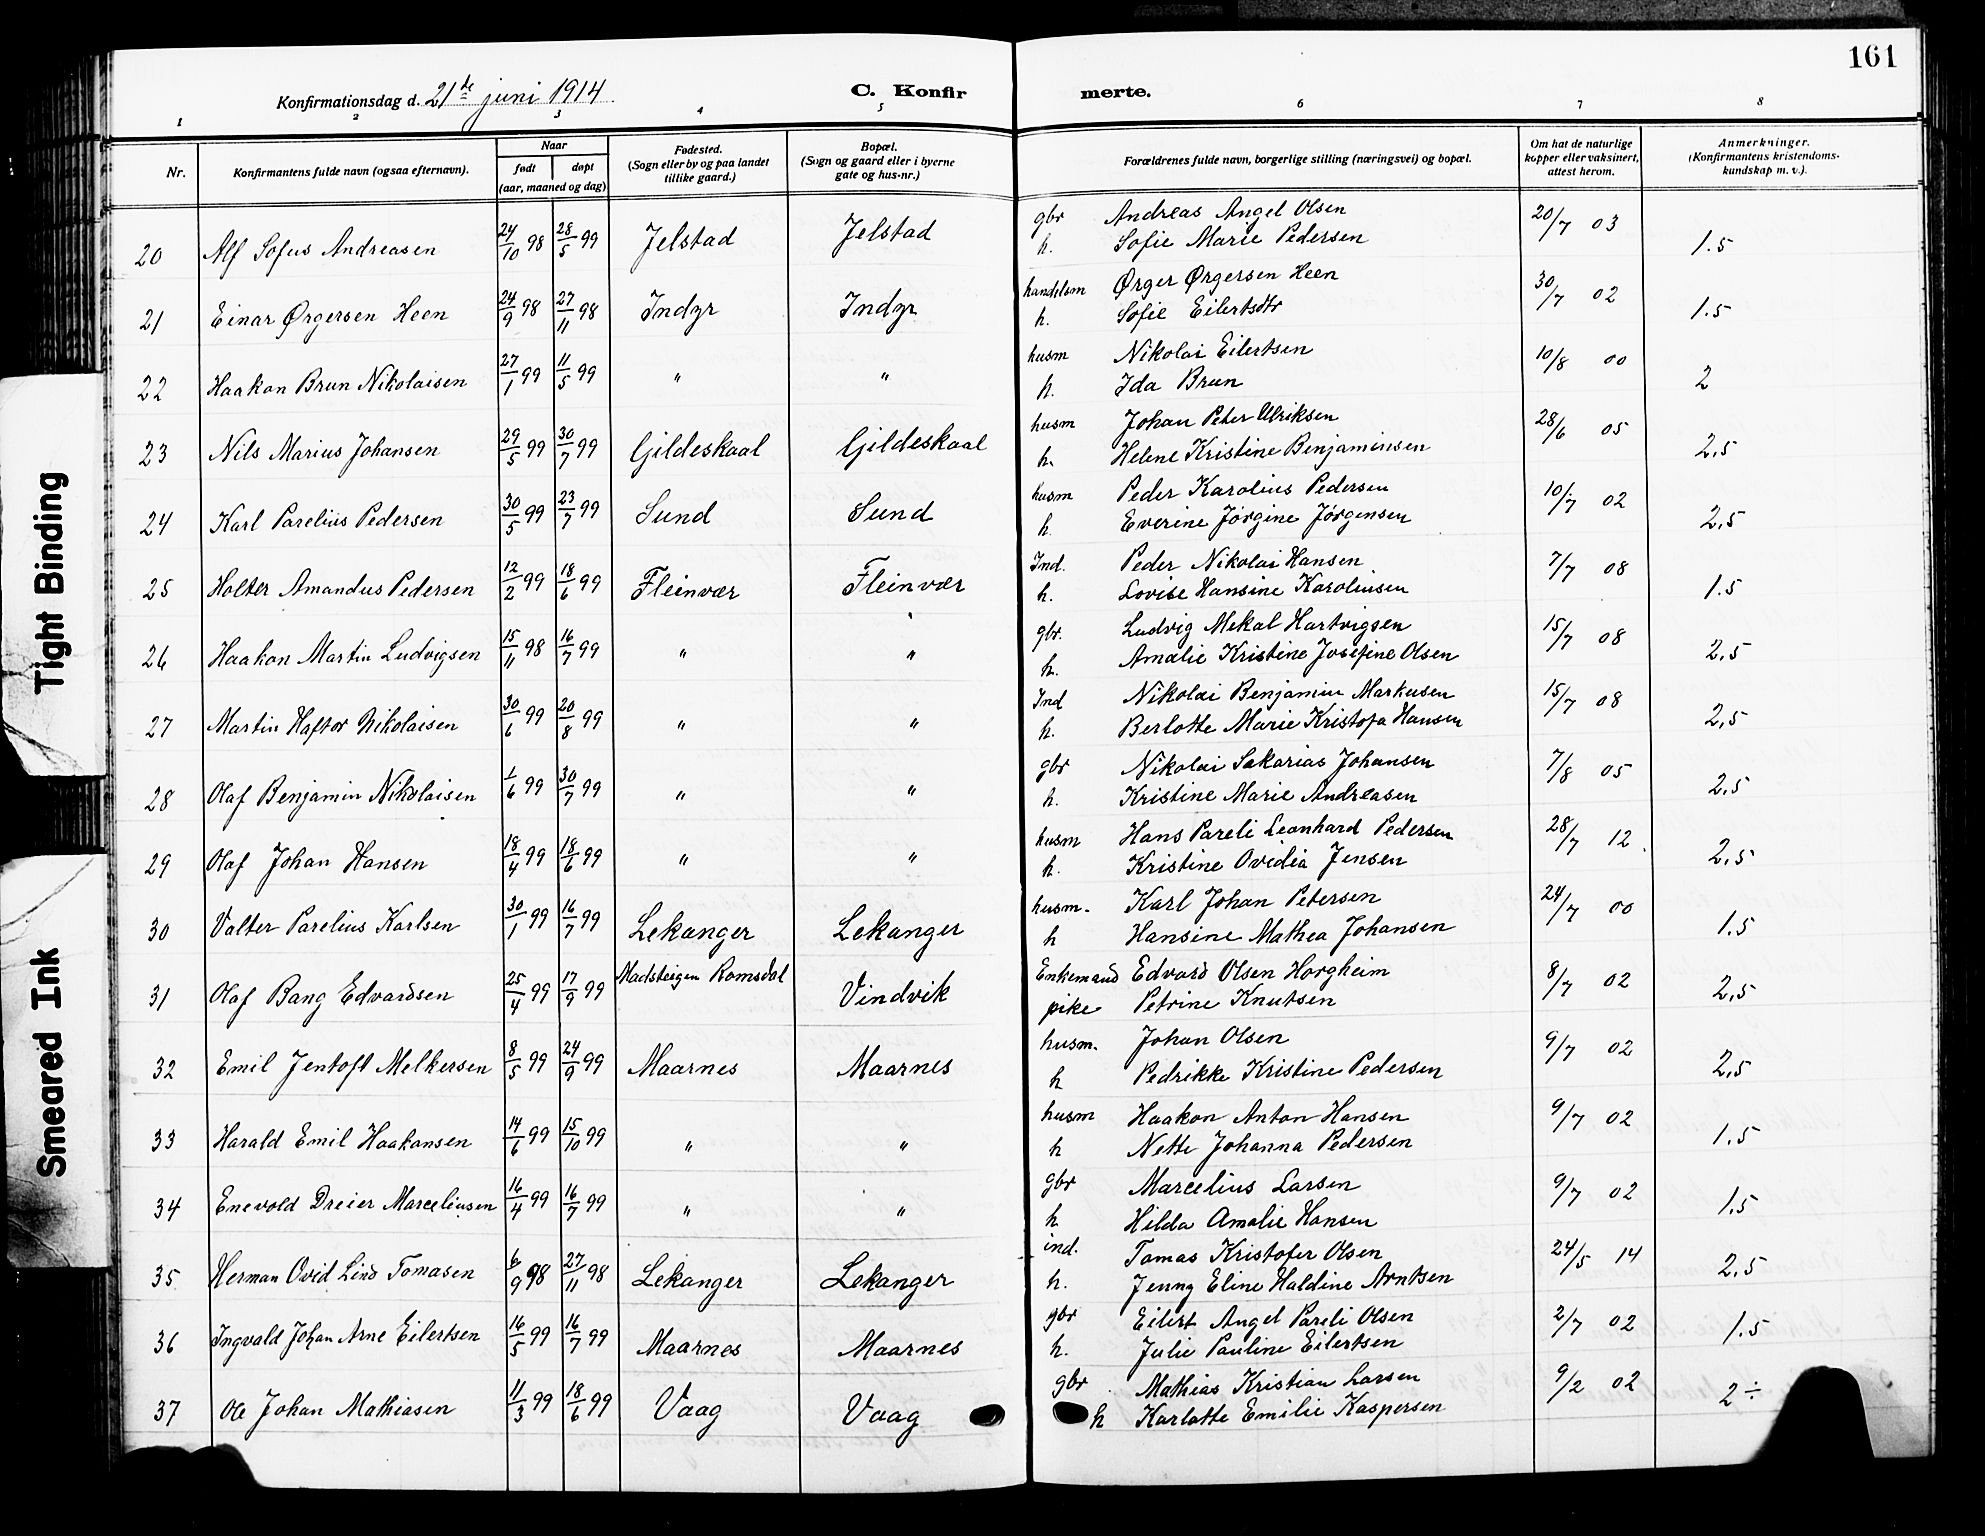 161
Konfirmationsdag d. 21de juni 1914. C. Konfirmerte.
1 2 3 4 5 6 7 8
Nr. Konfirmantens fulde navn (ogsaa efternavn). Naar født døpt (aar, maaned og dag) Fødested. (Sogn eller by og paa landet tillike gaard.) Bopæl. (Sogn og gaard eller i byerne gate og hus-nr.) Forældrenes fulde navn, borgerlige stilling (næringsvei) og bopæl. Om hat de naturlige kopper eller vaksinert, attest herom. Anmerkninger. (Konfirmantens kristendoms-kundskap m. v.).
20 Alf Sofus Andreasen 24/10 98 28/5 99 Jelstad Jelstad gbr Andreas Angel Olsen 20/7 03 1.5
h. Sofie Marie Pedersen
21 Einar Ørgersen Heen 24/9 98 27/11 98 Indyr Indyr handelsm Ørger Ørgersen Heen 30/7 02 1.5
h. Sofie Eilertsdtr
22 Haakon Brun Nikolaisen 27/1 99 11/5 99 " " husm Nikolai Eilertsen 10/8 00 2
h. Ida Brun
23 Nils Marius Johansen 29/5 99 30/7 99 Gildeskaal Gildeskaal husm Johan Peter Ulriksen 28/6 05 2,5
h. Helene Kristine Benjaminsen
24 Karl Parelius Pedersen 30/5 99 23/7 99 Sund Sund husm Peder Karolius Pedersen 10/7 02 2,5
h. Everine Jørgine Jørgensen
25 Holter Amandus Pedersen 12/2 99 18/6 99 Fleinvær Fleinvær Ind. Peder Nikolai Hansen 7/7 08 1.5
h. Lovise Hansine Karoliusen
26 Haakon Martin Ludvigsen 15/11 98 16/7 99 " " gbr. Ludvig Mekal Hartvigsen 15/7 08 2,5
h. Amalie Kristine Josefine Olsen
27 Martin Haftor Nikolaisen 30/6 99 20/8 99 " " Ind Nikolai Benjamin Markusen 15/7 08 2,5
h. Berlotte Marie Kristofa Hansen
28 Olaf Benjamin Nikolaisen 1/6 99 30/7 99 " " gbr Nikolai Sakarias Johansen 7/8 05 2,5
h. Kristine Marie Andreasen
29 Olaf Johan Hansen 18/4 99 18/6 99 " " husm Hans Pareli Leonhard Pedersen 28/7 12 2,5
h. Kristine Ovidia Jensen
30 Valter Parelius Karlsen 30/1 99 16/7 99 Lekanger Lekanger husm. Karl Johan Petersen 24/7 00 1.5
h Hansine Mathea Johansen
31 Olaf Bang Edvardsen 25/4 99 17/9 99 Madsteigen Romsdal Vindvik Enkemand Edvard Olsen Horgheim 8/7 02 2,5
pike Petrine Knutsen
32 Emil Jentoft Melkersen 8/5 99 24/9 99 Maarnes Maarnes husm. Johan Olsen 9/7 02 2,5
h Pedrikke Kristine Pedersen
33 Harald Emil Haakonsen 14/6 99 15/10 99 " " husm Haakon Anton Hansen 9/7 02 1.5
h Nette Johanna Pedersen
34 Enevold Dreier Marceliusen 16/4 99 16/7 99 " " gbr Marcelius Larsen 9/7 02 1.5
h Hilda Amalie Hansen
35 Herman Ovid Lind Tomasen 6/9 98 27/11 98 Lekanger Lekanger ind. Tomas Kristofer Olsen 24/5 14 2.5
h. Jenny Eline Haldine Arntsen
36 Ingvald Johan Arne Eilertsen 16/5 99 16/7 99 Maarnes Maarnes gbr Eilert Angel Pareli Olsen 2/7 02 1.5
h. Julie Pauline Eilertsen
37 Ole Johan Mathiasen 11/3 99 18/6 99 Vaag Vaag gbr Mathias Kristian Larsen 9/2 02 2 ÷
h Karlotte Emilie Kaspersen
Tight Binding
Smeared Ink